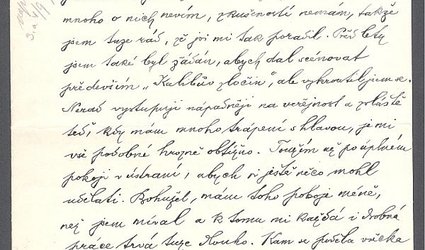 mnoho o nich nevím, zkušeností nemám, takže
jsem tuze rád, že jsi mi tak poradil. Před lety
jsem také byl žádán, abych dal scénovat
především „Kalibův zločin“, ale vykroutil jsem se.
Nerad vystupuji nápadněji na veřejnost a zvláště
teď, kdy mám mnoho trápení s hlavou, je mi
vše podobné hrozně obtížno. Toužím už po úplném
pokoji v ústraní, abych si ještě něco mohl
udělati. Bohužel, mám toho pokoje méně,
než jsem míval a k tomu mi každá i drobná
práce trvá tuze dlouho. Kam se poděla všecka